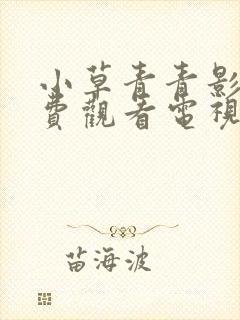 小草青青影
費觀看電視
苗海波